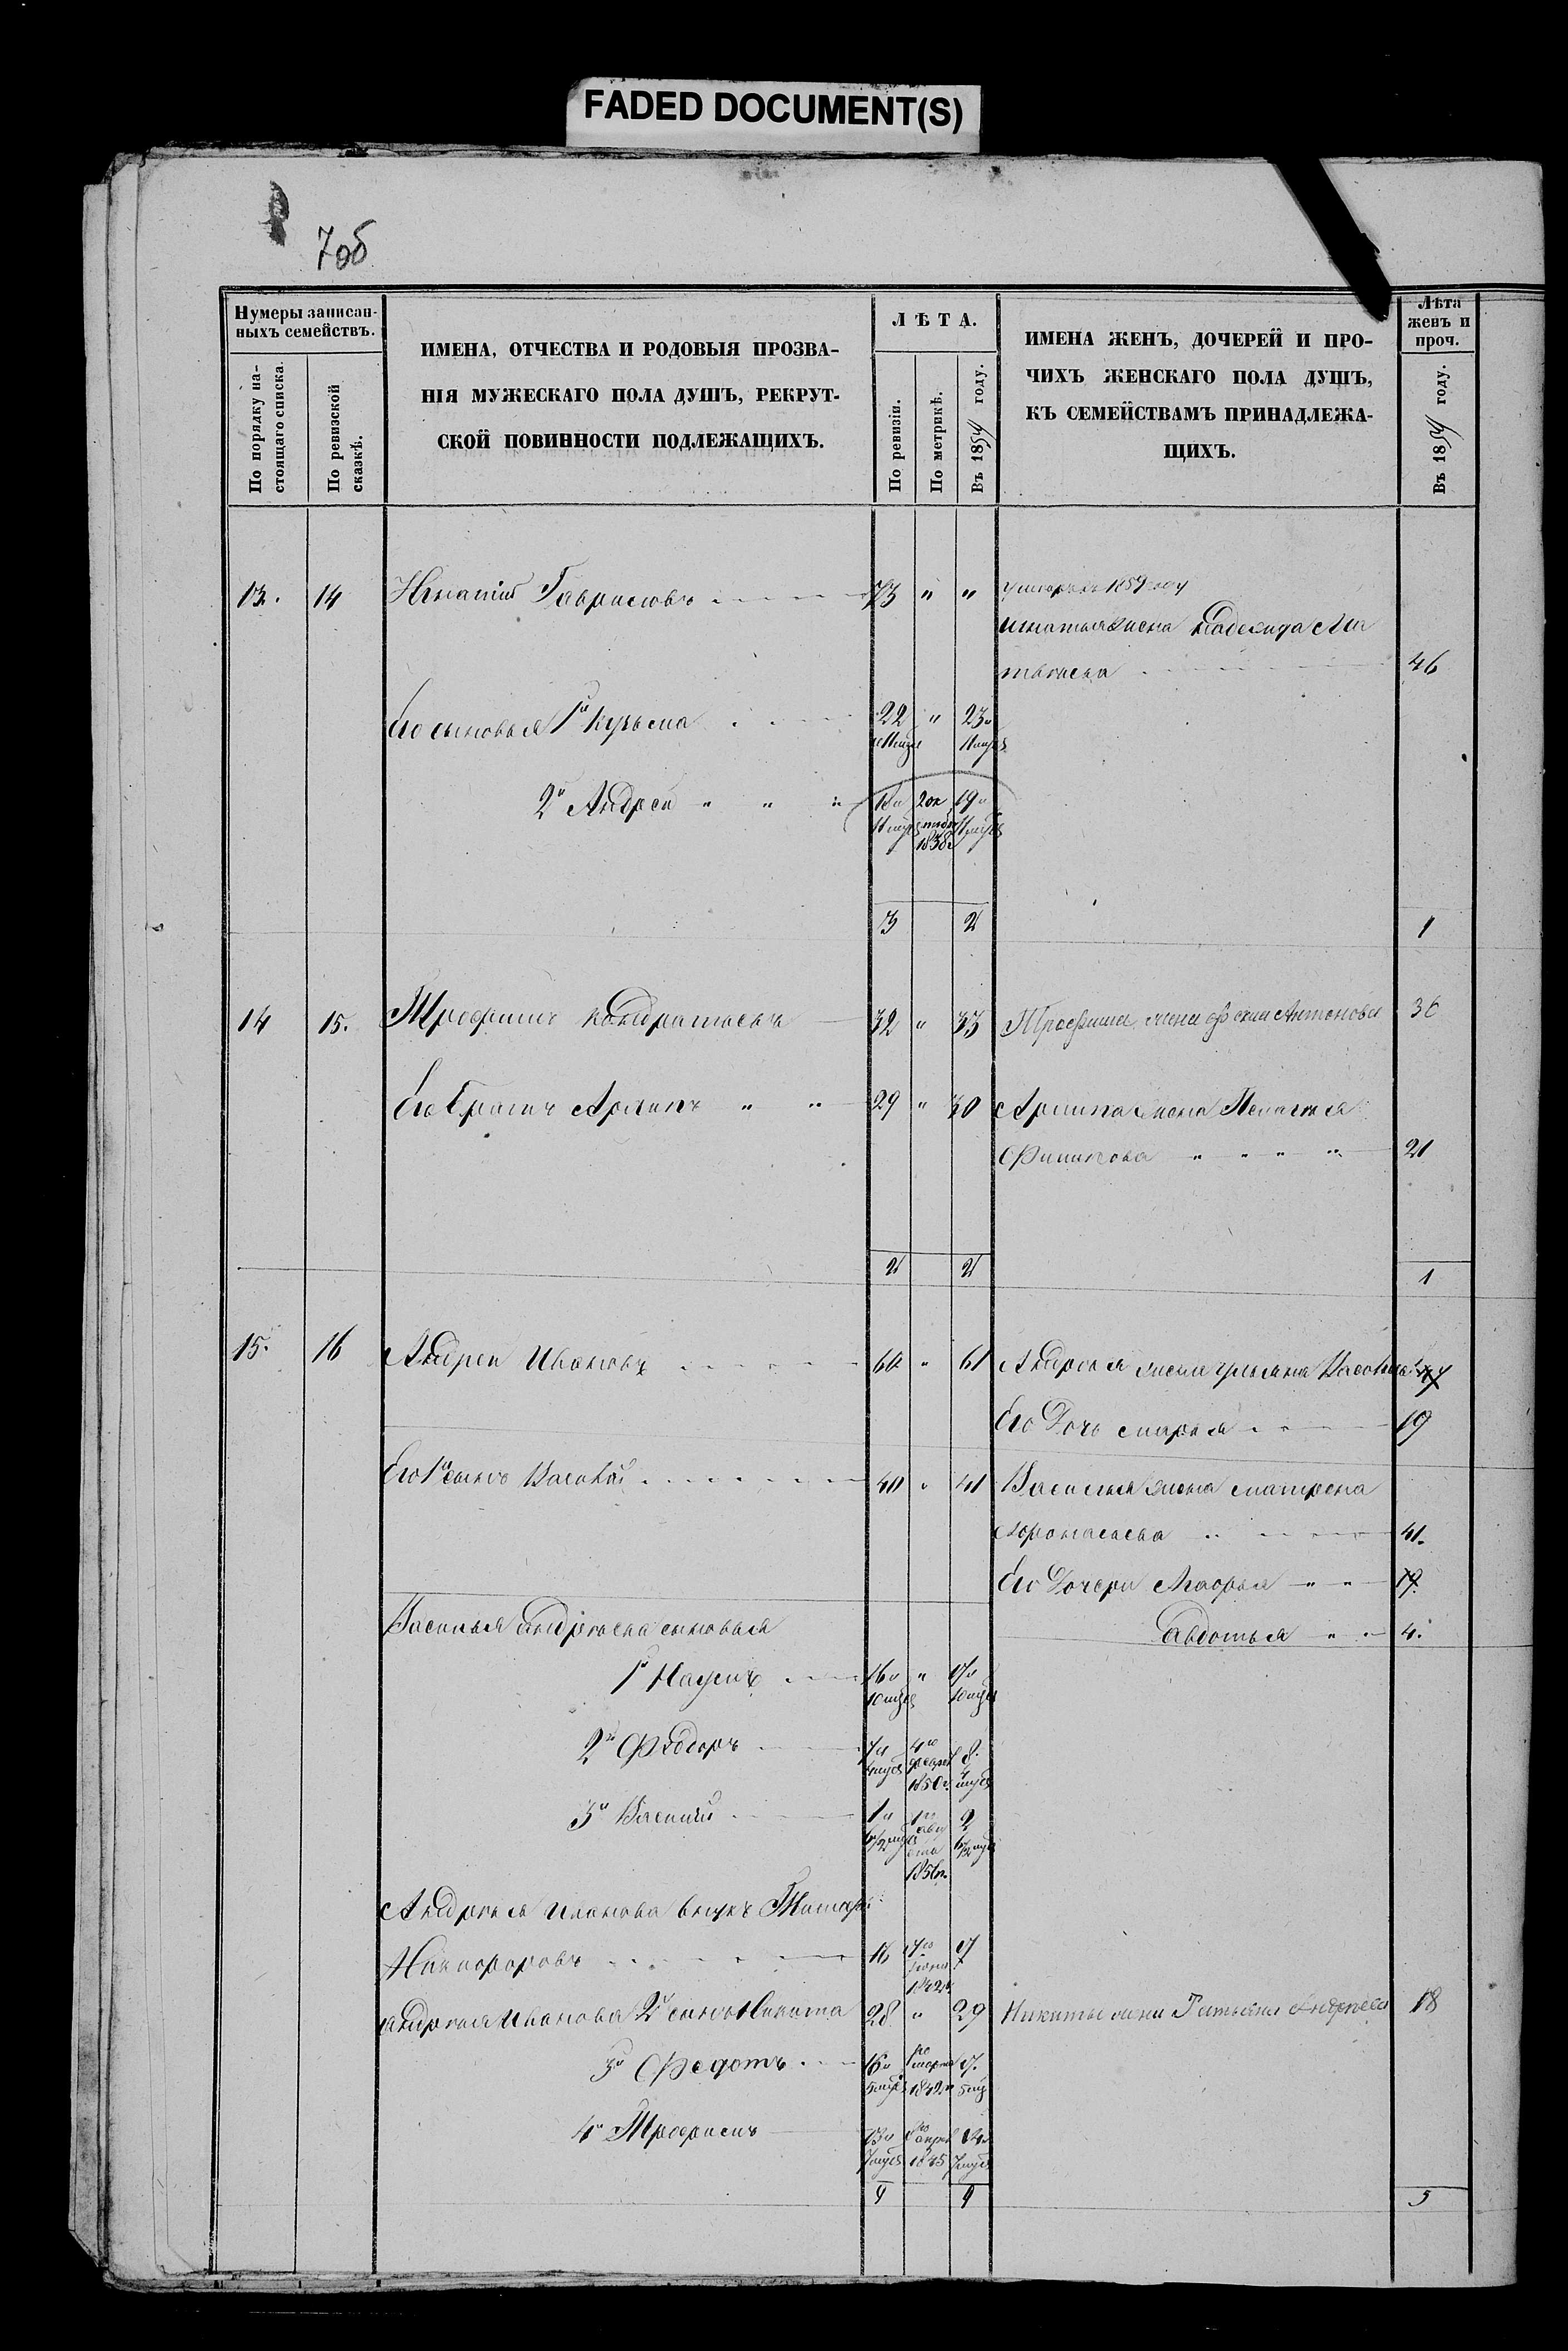 FADED DOCUMENT(S)
7об
Нумеры записан-
ныхъ семействъ.
По порядку на-
стоящаго списка.
По ревизской
сказкѣ.
ИМЕНА, ОТЧЕСТВА И РОДОВЫЯ ПРОЗВА-
НІЯ МУЖЕСКАГО ПОЛА ДУШЪ, РЕКРУТ-
СКОЙ ПОВИННОСТИ ПОДЛЕЖАЩИХЪ.
ЛѢТА.
По ревизіи.
По метрикѣ.
Въ 1859 году.
ИМЕНА ЖЕНЪ, ДОЧЕРЕЙ И ПРО-
ЧИХЪ ЖЕНСКАГО ПОЛА ДУШЪ,
КЪ СЕМЕЙСТВАМЪ ПРИНАДЛЕЖА-
ЩИХЪ.
Лѣта
женъ и
проч.
Въ 1859 году.
13. 14 Игнатій Гавриловъ 73 " "
Игнатья жена Надежда Ма
твѣева 46
Его сыновья 1й Кузьма 22 " 23
2й Андрей " " " 19
3 2 1
14 15. Трофимъ Кондратьевъ 32 " 33 Трофима жена Антонова 36
Его братъ Архипъ " " 29 " 30 Архипа жена Пелагея
Филипова " " " " 21
2 2 1
15. 16 Андрей Ивановъ 60 " 61 Андрея жена Ульяна
Его дочь Марья 19
Его 1й сынъ Василій 40 " 41 Василья жена Матрена
Афонасьева 41.
Его дочери Марья " " 19
Авдотья " " 4.
Василья Андреева сыновья
1й Наумъ 16 " 17
2й Фѣдоръ 7 1850 8
3й Василій 1 2
Андрея Иванова внукъ Тимофей
Никифоровъ 16 1842 17
Андрея Иванова 2й сынъ Никита 28 " 29 Никиты жена Татьяна Андреева 18
3й Федотъ 16 1842 17
4й Трофимъ 13 1845 14
9 9 5